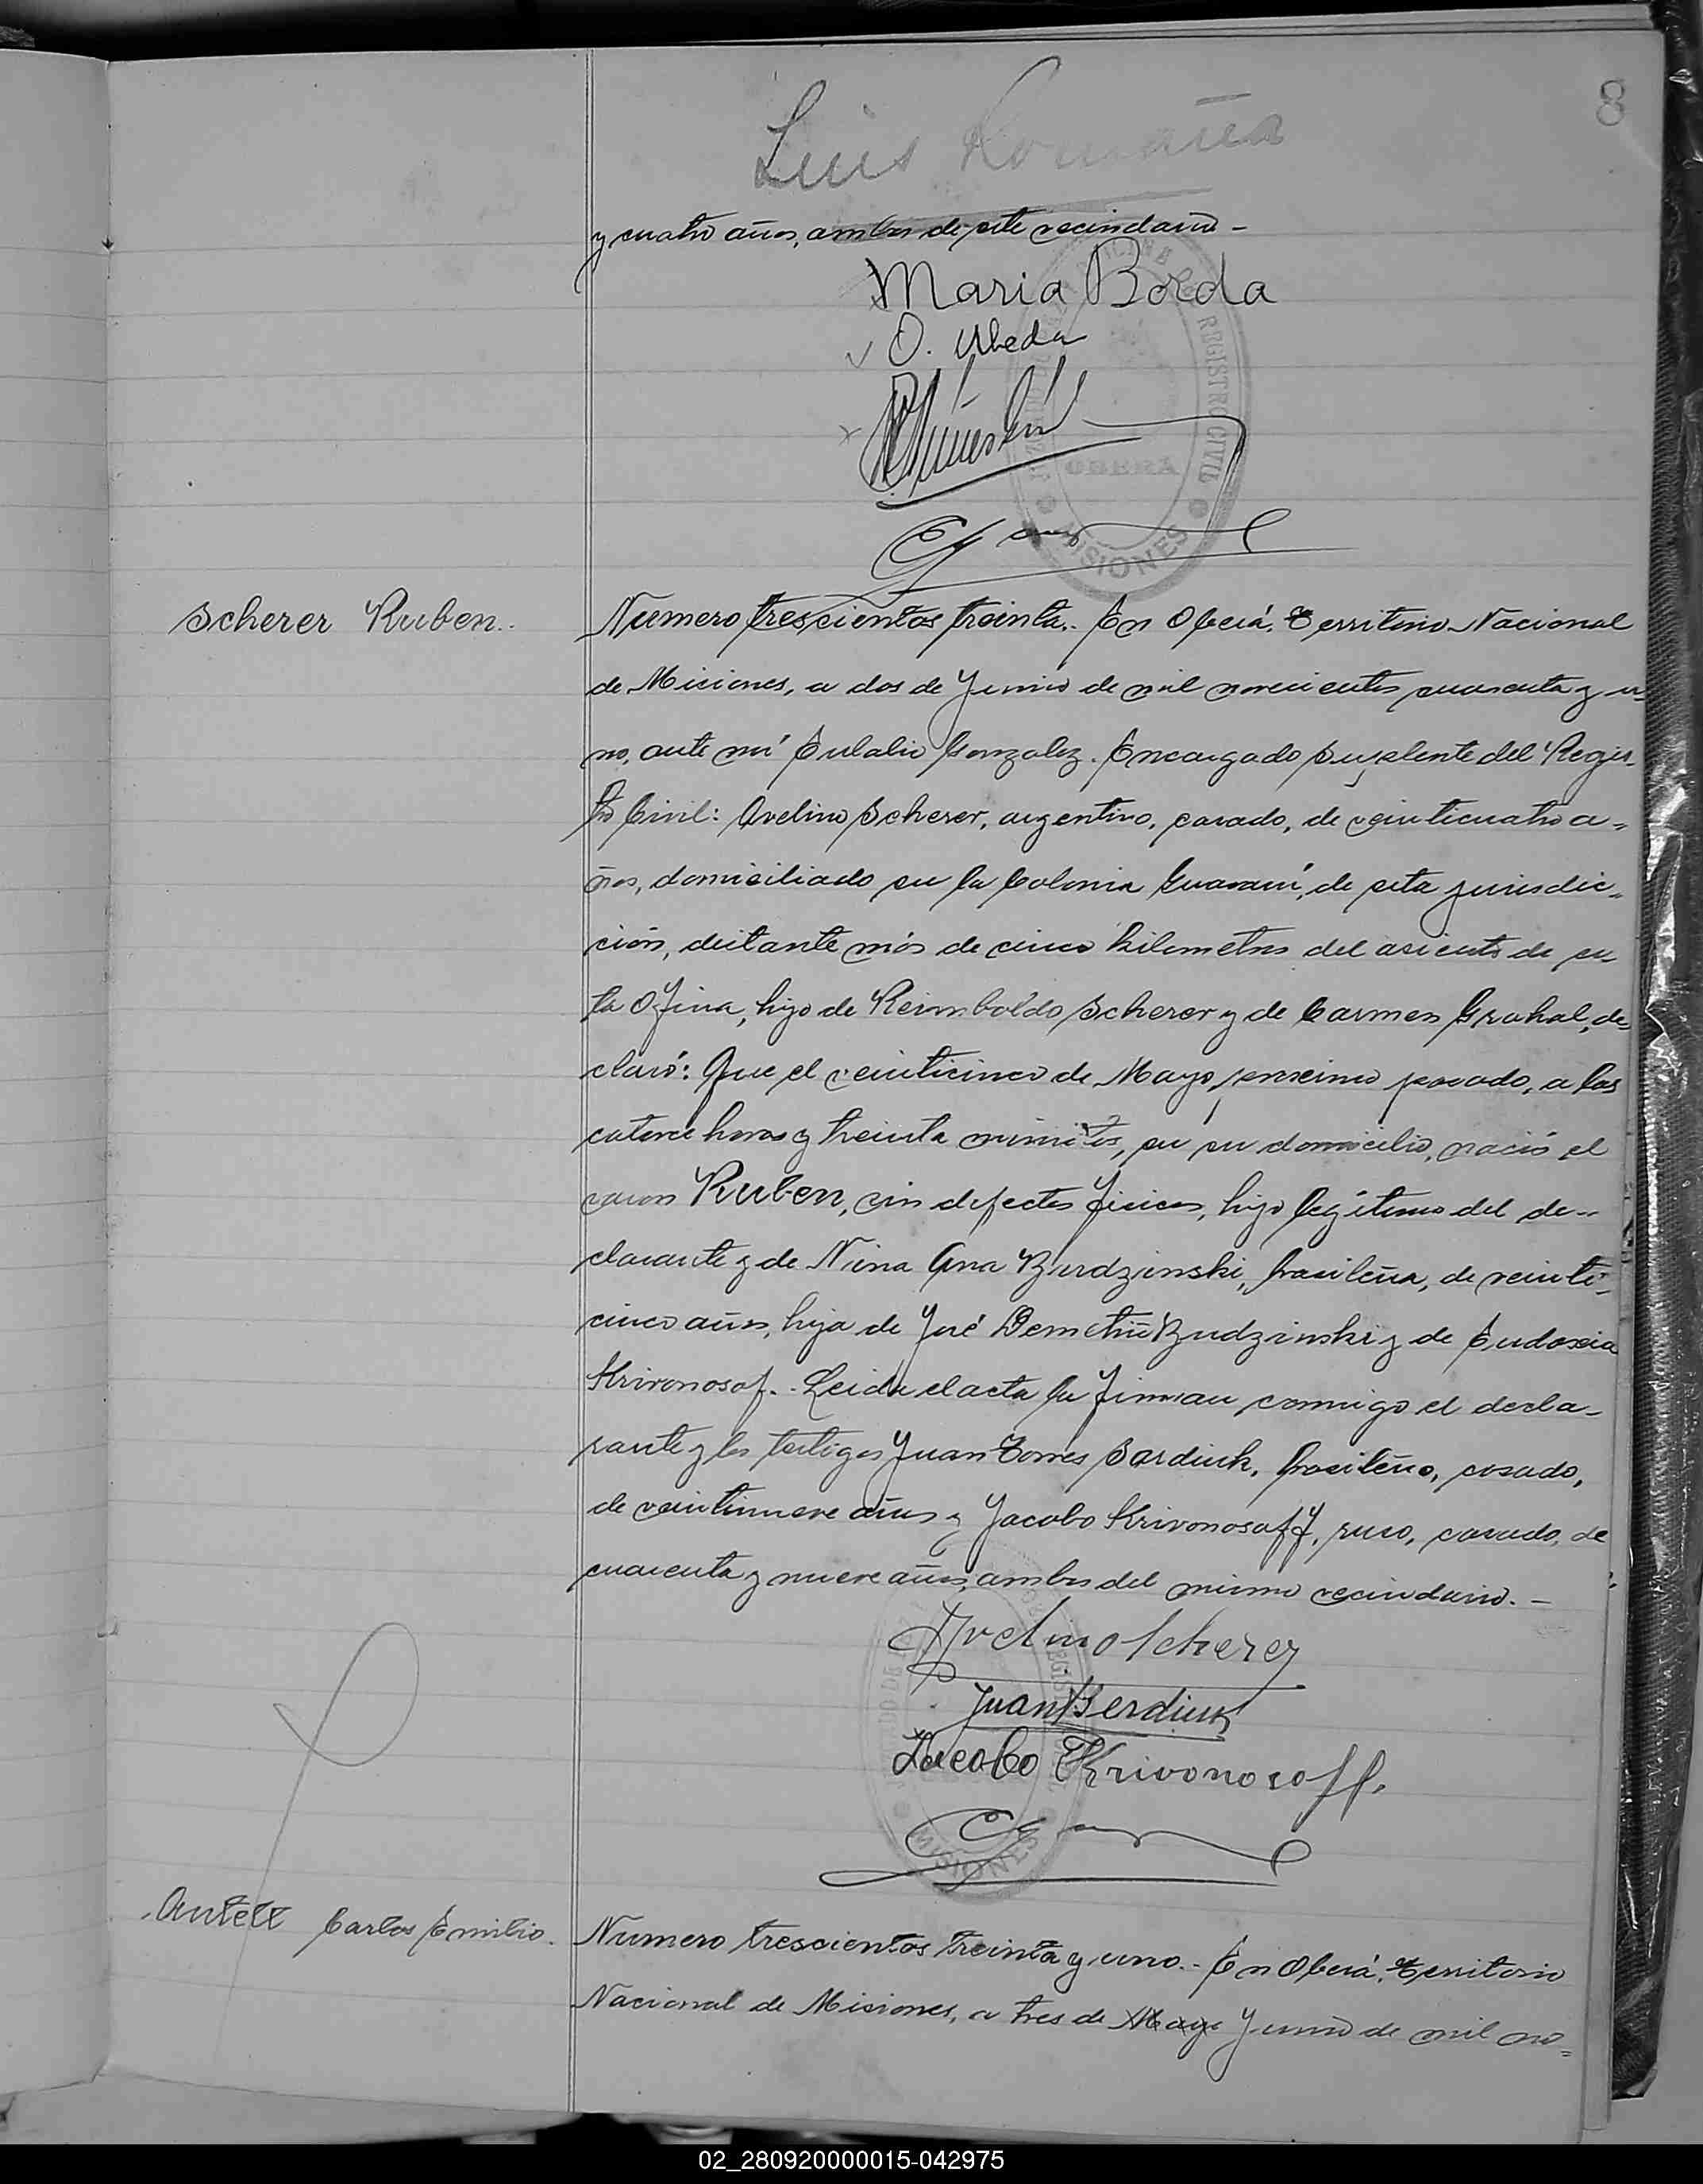 8
Luis Romaña
y cuatro años, ambos de este vecindario -
Maria Borda
O. Ubeda
REGISTRO CIVIL
OBERÁ
MISIONES
Scherer Ruben.
Numero trescientos treinta.- En Oberá, Territorio Nacional
de Misiones, a dos de Junio de mil novecientos cuarenta y u-
no, ante mí Eulalio Gonzalez. Encargado Suplente del Regis-
tro Civil: Avelino Scherer, argentino, casado, de veinticuatro a-
ños, domiciliado en la Colonia Guaraní, de esta jurisdic-
ción, distante más de cinco kilometros del asiento de es-
ta Ofina, hijo de Reimboldo Scherer y de Carmen Grahal, de-
claró: Que el veinticinco de Mayo proximo pasado, a las
catorce horas y treinta minutos, en su domicilio, nació el
varon Ruben, sin defectos fisicos, hijo legítimo del de-
clarante y de Nina Ana Budzinski, brasileña, de veinti-
cinco años, hija de José Demetrio Budzinski y de Eudoxia
Krivonosof.- Leida el acta la firman conmigo el decla-
rante y los testigos Juan Torres Bardiuk, brasileño, casado,
de veintinueve años y Jacobo Krivonosoff, ruso, casado, de
cuarenta y nueve años, ambos del mismo vecindario. -
Avelino Scherer
Juan Berdiuk
Jacobo Krivonosoff.
MISIONES
Autett Carlos Emilio.
Numero trescientos treinta y uno.- En Oberá, Territorio
Nacional de Misiones, a tres de Mayo Junio de mil no-
02_280920000015-042975